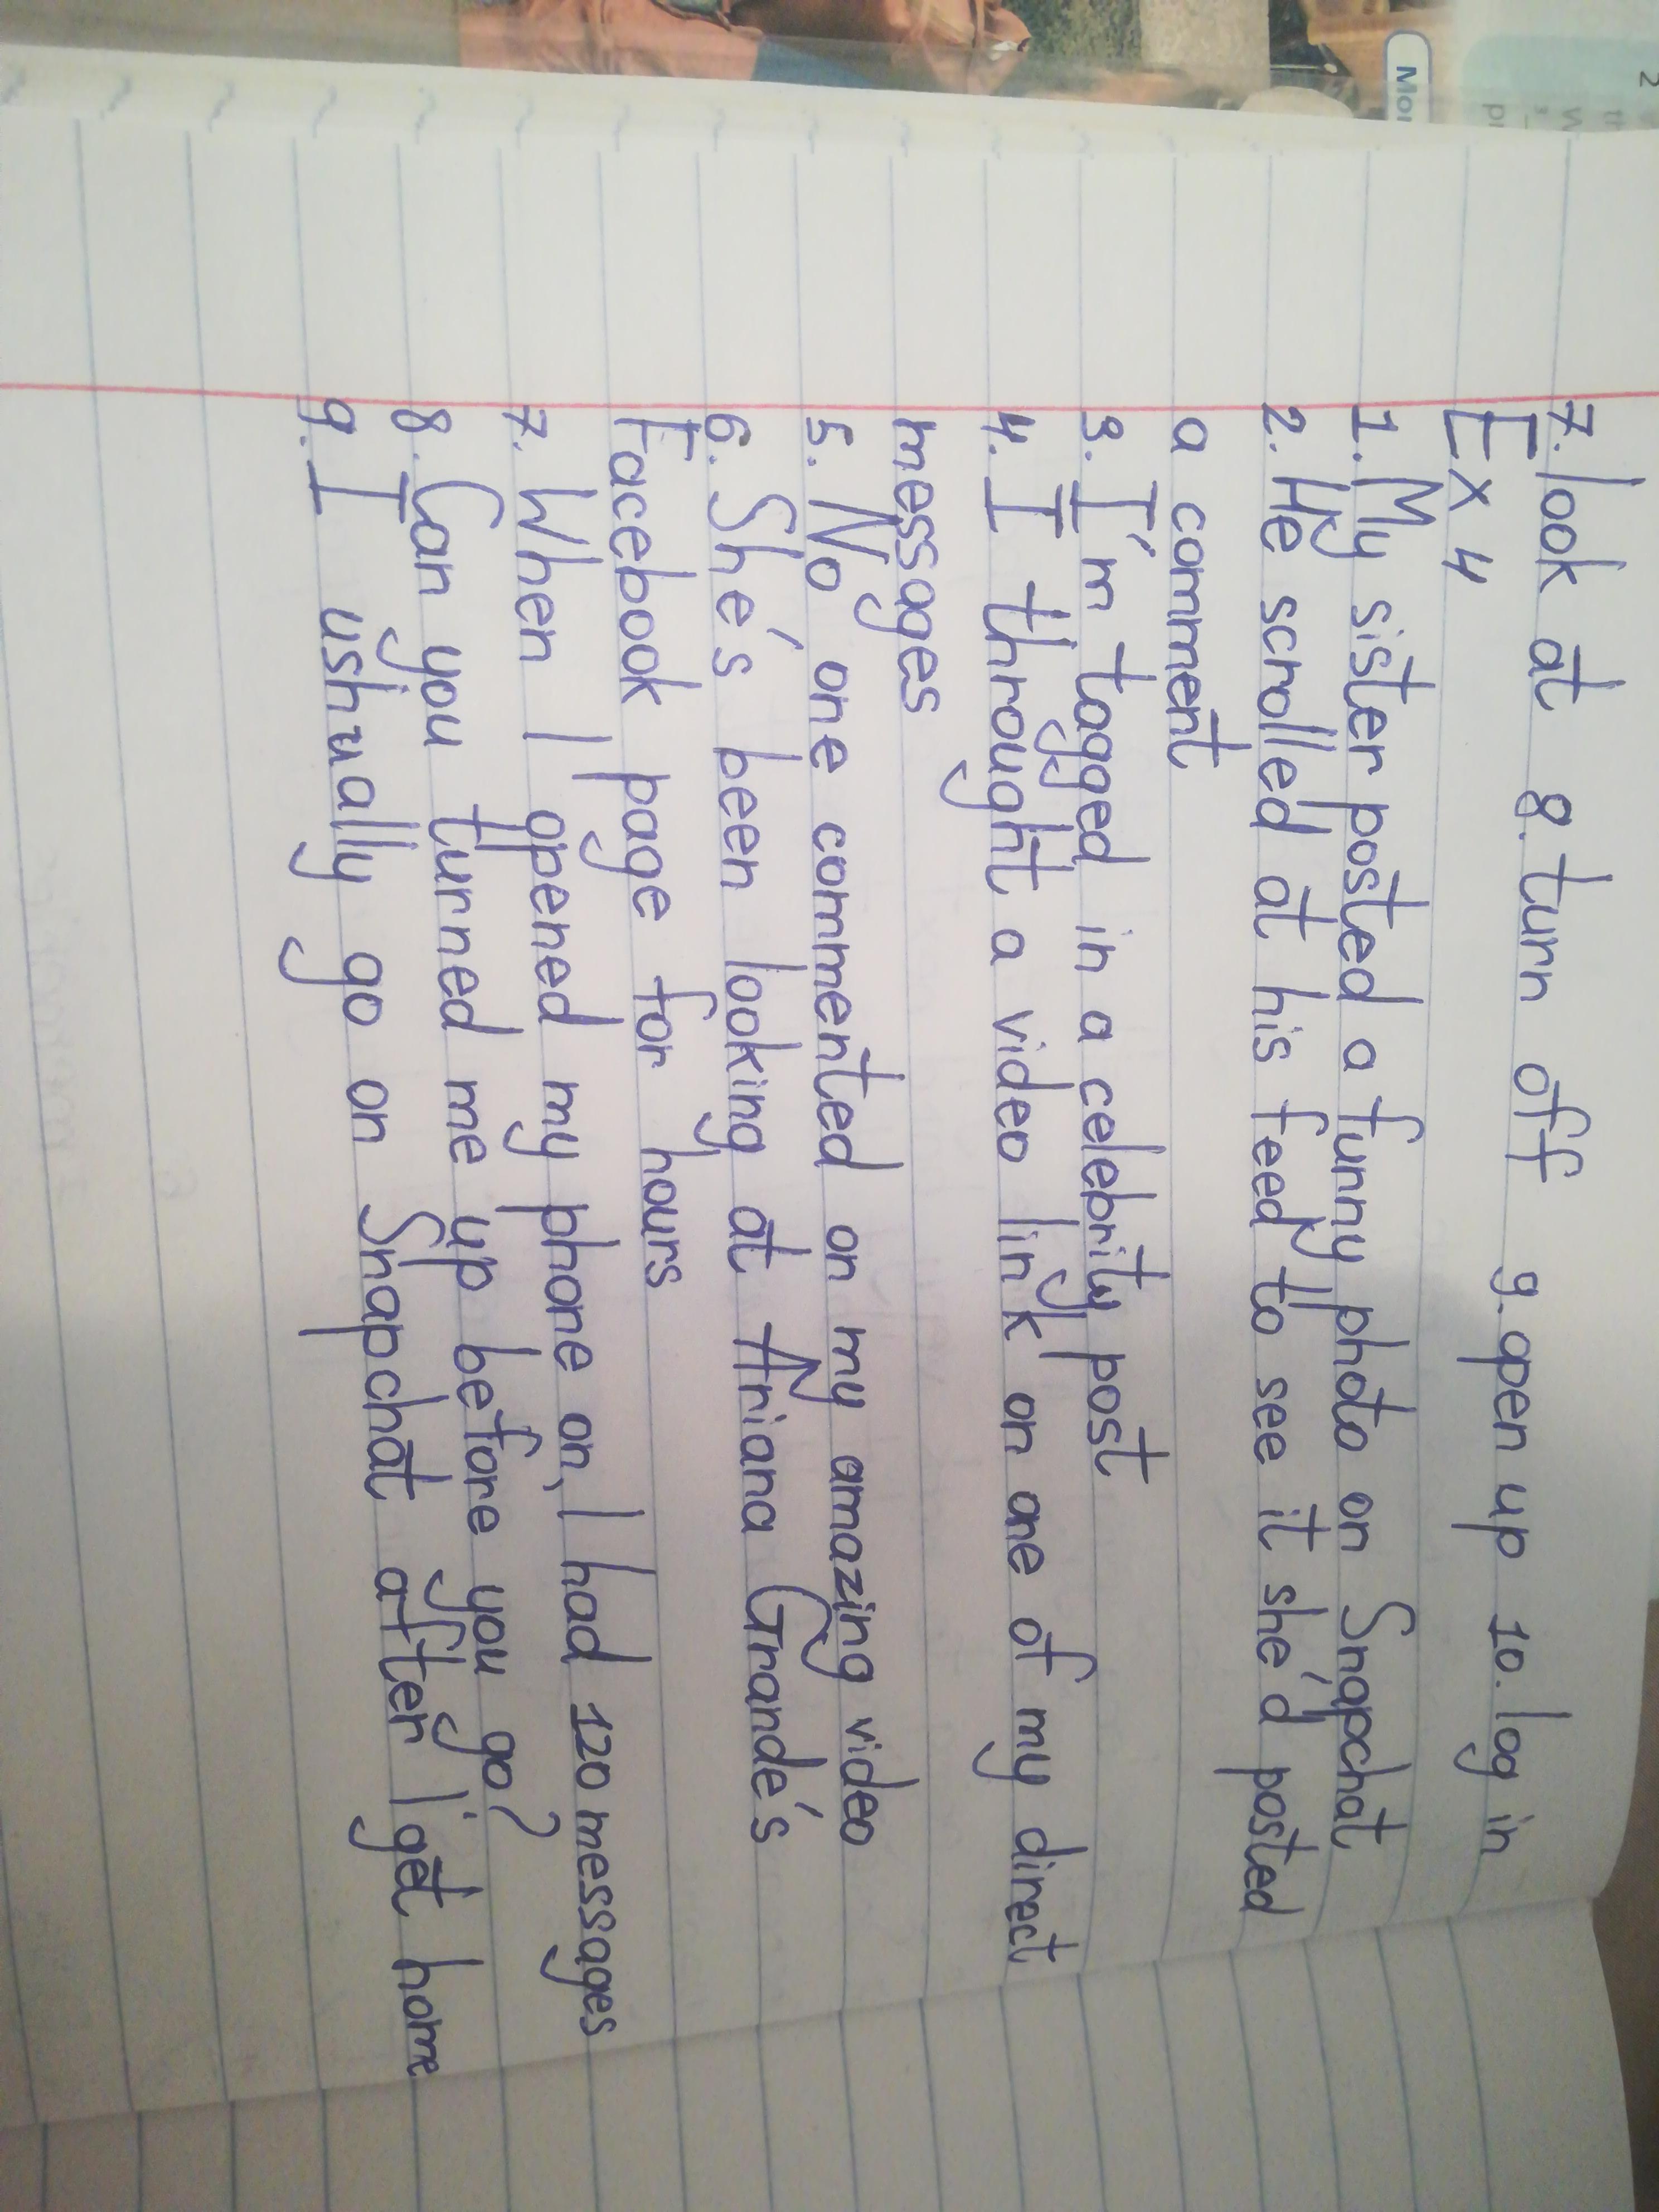 7. look at 8. turn off 9. open up 10. log in
Ex 4
1. My sister posted a funny photo on Snapchat
2. He scrolled at his feed to see it she'd posted
a comment
3. I'm tagged in a celebrity post
4. I throught a video link on one of my direct
messages
5. No one commented on my amazing video
6. She's been looking at Ariana Grande's
Facebook page for hours
7. When I opened my phone on, I had 120 messages
8. Can you turned me up before you go?
9. I ushually go on Snapchat after I get home
Mor
2